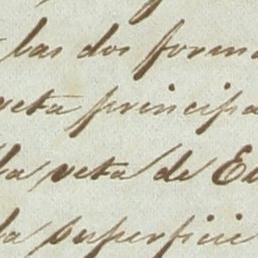 las dos form
veta principa
la veta de E
la superficie